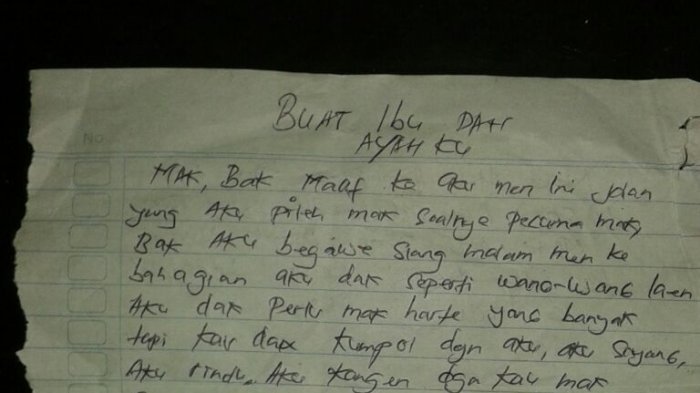 No.
BUAT Ibu DAN
AYAH KU
MAK, BAK MAAF ke aku men ini jalan
yang AKu pileh mak soalnye percuma mak,
BAK AKu begawe siang malam men ke
bahagian aku dak seperti wang-wang laen
AKu dak Perlu mak harte yang banyak
tapi kau dak kumpol dgn aku, aku sayang,
AKu rindu. AKu kangen dga kau mak